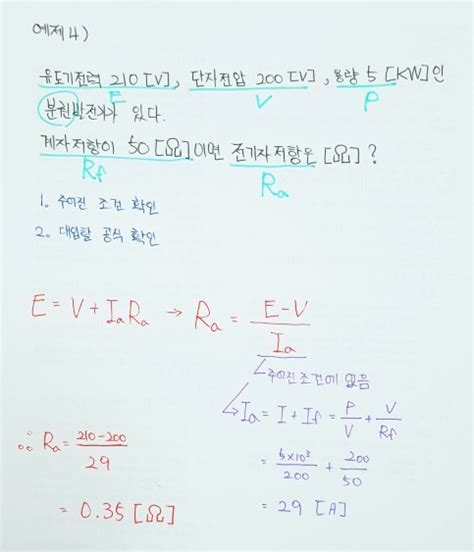 예제4)
유도기전력 210 [V], 단자전압 200 [V], 용량 5 [KW]인
E V P
분권발전기가 있다.
계자저항이 50 [Ω]이면 전기자저항은 [Ω]?
Rf Ra
1. 주어진 조건 확인
2. 대입할 공식 확인
E = V + IaRa → Ra = E-V / Ia
주어진 조건에 없음
Ia = I + If = P/V + V/Rf
= 5×10³/200 + 200/50
= 29 [A]
∴ Ra = 210-200 / 29
= 0.35 [Ω]